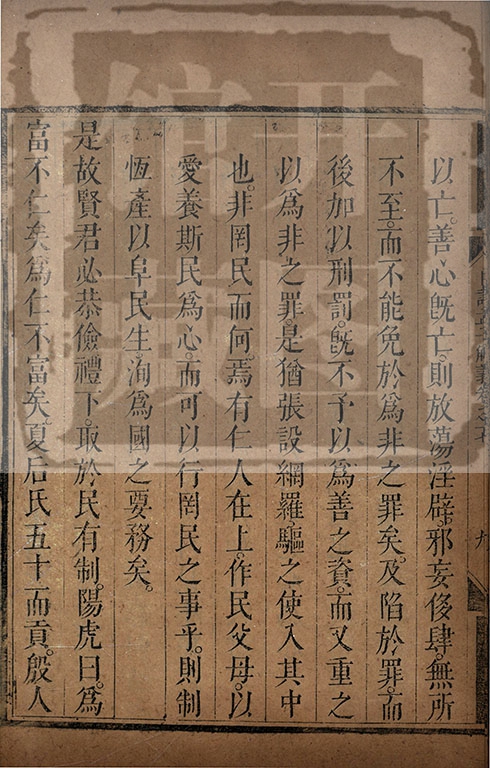 以亡。善心旣亡。則放蕩淫辟。邪妄侈肆。無所
不至。而不能免於爲非之罪矣。及陷於罪。而
後加以刑罰。旣不予以爲善之資。而又重之
以爲非之罪。是猶張設網羅。驅之使入其中
也。非罔民而何。焉有仁人在上。作民父母。以
愛養斯民爲心。而可以行罔民之事乎。則制
恆產以阜民生。洵爲國之要務矣。
是故賢君必恭儉禮下。取於民有制。陽虎曰。爲
富不仁矣。爲仁不富矣。夏后氏五十而貢。殷人